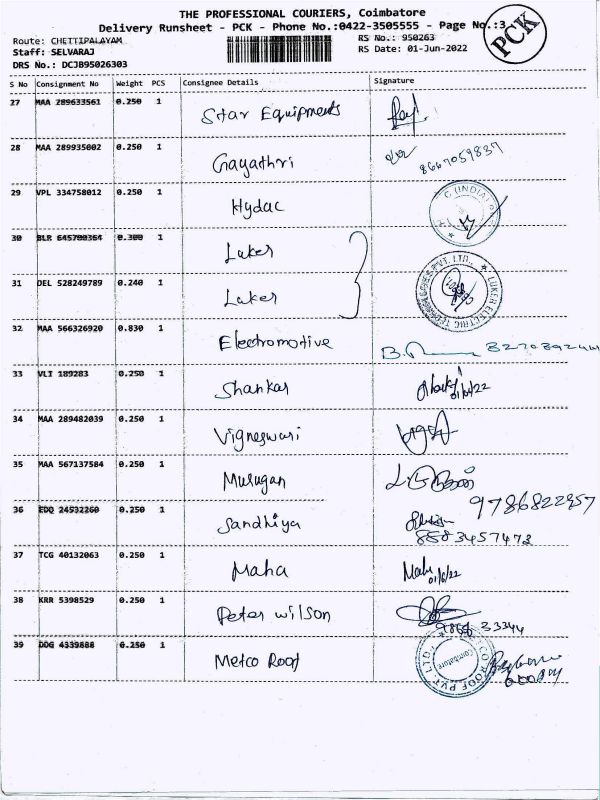 THE PROFESSIONAL COURIERS, Coimbatore
Delivery Runsheet - PCK - Phone No.:0422-3505555 - Page No.:3
PCK
Route: CHETTIPALAYAM
RS No.: 950263
Staff: SELVARAJ
RS Date: 01-Jun-2022
DRS No.: DCJB95026303
S No Consignment No Weight PCS Consignee Details Signature
27 MAA 289633561 0.250 1 Star Equipments
28 MAA 289935002 0.250 1 Gayathri 8667059837
29 VPL 334758012 0.250 1 Hydac
30 BLR 645700364 0.300 1 Luker
31 DEL 528249789 0.240 1 Luker
LUKER ELECTRIC TECHNOLOGIES PVT. LTD.,
32 MAA 566326920 0.830 1 Electromotive
33 VLT 189283 0.250 1 Shankar
34 MAA 289482039 0.250 1 Vigneswari
35 MAA 567137584 0.250 1 Murugan
9786822957
36 EDQ 24532260 0.250 1 Sandhiya
8883457472
37 TCG 40132063 0.250 1 Maha Maha 01/6/22
38 KRR 5398529 0.250 1 Peter Wilson
39 DDG 4339888 0.250 1 Metco Roof
METCO ROOF PVT. LTD. Coimbatore